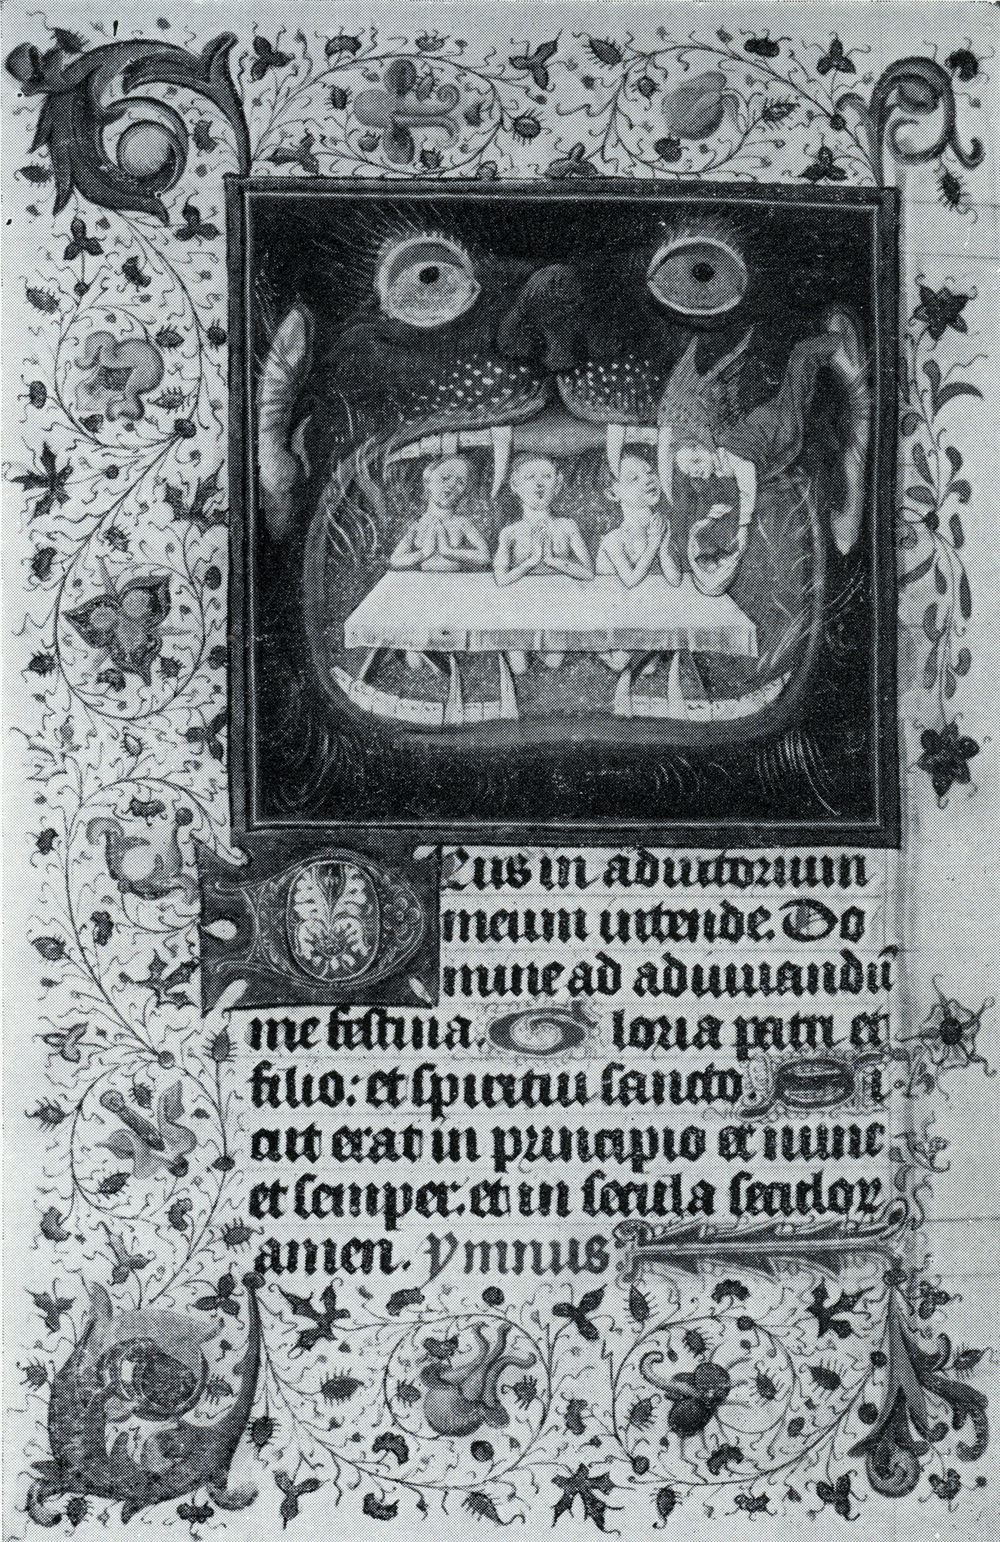 Deus in adiutorium
meum intende. Do
mine ad adiuuandū
me festina. Gloria patri et
filio: et spiritui sancto. Si
cut erat in principio et nunc
et semper: et in secula seculor
amen. ymnus